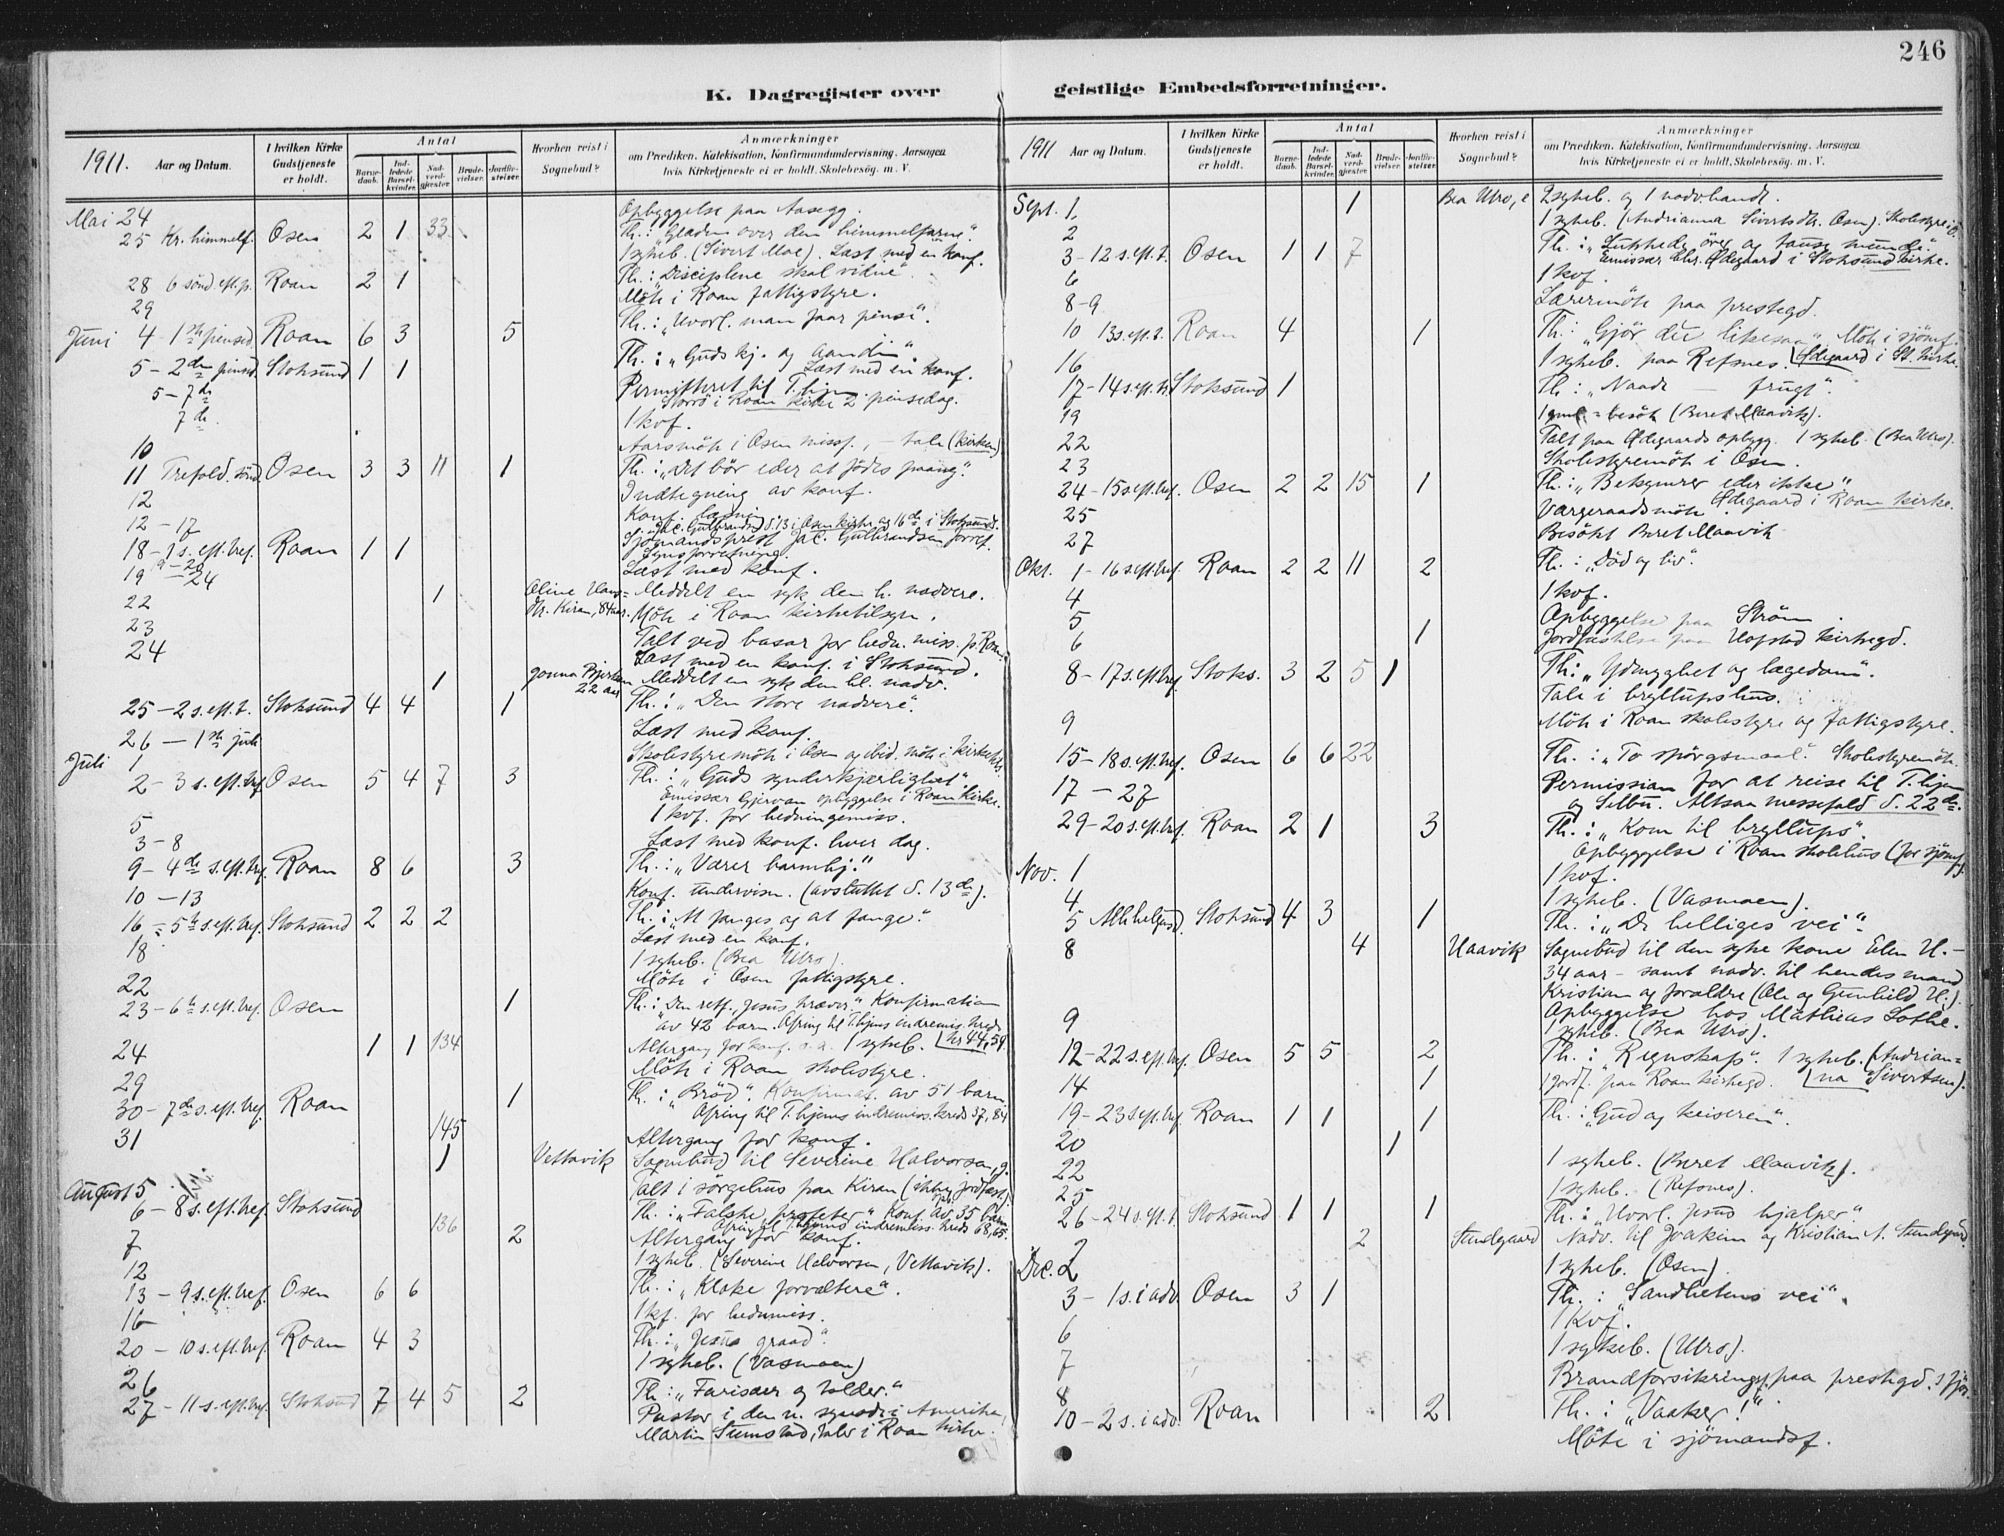 246
K. Dagregister over geistlige Embedsforretninger.
1911. Aar og Datum.
I hvilken Kirke Gudstjeneste er holdt.
Antal
Barnedaab.
Indledede Barselkvinder.
Nadverdgjæster
Brudevielser.
Jordfæstelser.
Hvorhen reist i Sognebud?
Anmærkninger
om Prædiken, Katekisation, Konfirmandundervisning, Aarsagen
hvis Kirketjeneste ei er holdt. Skolebesög. m. V.
Mai 24 Opbyggelse paa Aasegg.
25 Kr. himmelf. Osen 2 1 33 Th.: "Glæden over den himmelfarne".
1 sykeb. (Sivert Moe). Læst med en konf.
28 6 sönd. eft. p. Roan 2 1 Th.: "Disciplene skal vidne".
29 Möte i Roan fattigstyre.
Juni 4 - 1ste pinsed. Roan 6 3 5 Th.: "Hvorl. man faar pinse".
5 - 2den pinsed. Stoksund 1 1 Th.: "Guds kj. og Aanden".
Læst med en konf.
5 - 7de Permitteret til T.hjem
i Roan kirke 2 pinsedag.
7de 1 kvf.
10 Aarsmöte i Osen missf., - tale (kirken)
11 Trefold. sönd. Osen 3 3 11 1 Th.: "Det bör eder at födes paany".
12 Indtegning av konf.
12 - 17 Konf. læsning
Jac. Gulbrandsen d. 13 i Osen kirke og 16de i Stoksund.
18 - 1 s. eft. tref. Roan 1 1 Sjömandsprest Jac. Gulbrandsen forret.
19 - 20 Synsforretning.
19 - 24 Læst med konf.
22 1 Oline Hans= Meddelt en syk den h. nadvere.
23 dtr. Kiran, 84 aar. Möte i Roan kirketilsyn.
24 Talt ved basar for hedn. miss. p. Roan
Læst med en konf. i Stoksund.
1 22 aar Meddelt en syk den hl. nadv.
25 - 2 s. eft. t. Stoksund 4 4 1 Th.: "Den store nadvere".
26 - 1ste juli Læst med konf.
Juli 1 Skolestyremöte i Osen og ibid. möte i kirketils.
2 - 3 s. eft. tref. Osen 5 4 7 3 Th.: "Guds synderkjærlighet"
Emissær Gjervan opbyggelse i Roan kirke.
5 1 kvf. for hedningemiss.
3 - 8 Læst med konf. hver dag.
9 - 4de s. eft. tref. Roan 8 6 3 Th.: "Værer barmhj."
10 - 13 Konf. undervisn. (avsluttet d. 13de).
16 - 5te s. eft. tref. Stoksund 2 2 2 Th.: "At fanges og at fange".
Læst med en konf.
18 1 sykeb. (Bea Utro).
22 Möte i Osen fattigstyre.
23 - 6te s. eft. tref. Osen 1 Th.: "Den retf. Jesus kræver." Konfirmation
av 42 barn. Ofring til T.hjems indremis. kreds
24 1 1 134 Altergang for konf. o. a. 1 sykeb. kr 44,59
29 Möte i Roan skolestyre.
30 - 7de s. eft. tref. Roan 1 Th.: "Bröd". Konfirmat. av 51 barn
Ofring til T.hjems indremiss. kreds 37,84
31 145 Altergang for konf.
1 Vettavik Sognebud til Severine Halvorsen, g.
August 5 Talt i sörgehus paa Kiran (ikke jordfæst.)
6 - 8 s. eft. tref. Stoksund Th.: "Falske profeter" Konf. av 35 barn
Ofring til T.hjems indremiss. kreds 68,65.
7 136 2 Altergang for konf.
12 1 sykeb. (Severine Halvorsen, Vettavik).
13 - 9 s. eft. tref. Osen 6 6 Th.: "Kloke forvaltere".
16 1 kf. for hedemiss.
20 - 10 s. eft. tref. Roan 4 3 Th.: "Jesus graad".
26 1 sykeb. (Vasmoen)
27 - 11 s. eft. tref. Stoksund 7 4 5 2 Th.: "Farisæer og tolder."
Pastor i den n. synode i Amerika,
Martin Sumstad, taler i Roan kirke.
1911 Aar og Datum.
I hvilken Kirke Gudstjeneste er holdt.
Antal
Barnedaab.
Indledede Barselkvinder.
Nadverdgjæster
Brudevielser.
Jordfæstelser.
Hvorhen reist i Sognebud?
Anmærkninger
om Prædiken, Katekisation, Konfirmandundervisning, Aarsagen
hvis Kirketjeneste ei er holdt. Skolebesög. m. V.
Sept. 1. 1 Bea Utro, 2 sykeb. og 1 nadv.
2 1 sykeb. (Andrianna Sivertsdtr. Osen). Skolestyre i O.
3 - 12 s. eft. t. Osen 1 1 7 Th.: "Lukkede örer og tause munde".
Emissær Chr. Ödegaard i Stoksund kirke.
6 1 kvf.
8-9 Lærermöte paa prestegd.
10 13 s. eft. t. Roan 4 1 Th.: "Gjör du likesaa". Möte i sjömf.
16 1 sykeb. paa Refsnes. Ödegaard i St. kirke.
17 - 14 s. eft. tr. Stoksund 1 Th.: "Naade - frugt".
19 besök (Beret Haavik).
22 Talt paa Ödegaards opbygg. 1 sykeb. (Bea Utro).
23 Skolestyremöte i Osen.
24 - 15 s. eft. tref. Osen 2 2 15 1 Th.: "Bekymrer eder ikke"
Ödegaard i Roan kirke.
25 Vergeraadsmöte.
27 Besökt Beret Haavik
Okt. 1 - 16 s. eft. tref. Roan 2 2 11 2 Th.: "Död og liv".
4 1 kvf.
5 Opbyggelse paa Ström.
6 1 Jordfæstelse paa Hofstad kirkegd.
8 - 17 s. eft. tref. Stoks. 3 2 5 1 Th.: "Ydmyghet og lægedom".
Tale i bryllupshus.
9 Möte i Roan skolestyre og fattigstyre.
15 - 18 s. eft. tref. Osen 6 6 22 Th.: "To spörgsmaal." Skolestyremöte.
17 - 27 Permission for at reise til T.hjem
og Selbu. Altsaa messefald d. 22de.
29 - 20 s. eft. tref. Roan 2 1 3 Th.: "Kom til bryllups".
Opbyggelse i Roan skolehus (for sjömf.)
Nov. 1 1 kvf.
4 1 sykeb. (Vasmoen).
5 Allehelgensd. Stoksund 4 3 1 Th.: "De helliges vei".
8 4 Haavik Sognebud til den syke kone Elen H. -
34 aar - samt nadv. til hendes mand
Kristian og forældre (Ole og Gunhild H.).
9 Opbyggelse hos Mathias Sothe.
1 sykeb. (Bea Utro).
12 - 22 s. eft. tref. Osen 5 5 2 Th.: "Regnskap". 1 sykeb. (Andrian=
14 1 1 jordf. paa Roan kirkegd. na Sivertsen).
19 - 23 s. eft. tref. Roan 1 1 1 Th.: "Gud og keiseren".
20 1
22 1 sykeb. (Beret Haavik).
25 1 sykeb. (Refsnes).
26 - 24 s. eft. t. Stoksund 1 1 1 Th.: "Hvorl. Jesus hjælper".
2 Sundgaard Nadv. til Joakim og Kristian A. Sundgaard.
Dec. 2 1 sykeb. (Osen).
3 - 1 s. i adv. Osen 3 1 Th.: "Sandhetens vei".
6 1 Kvf.
7 1 sykeb. (Utro).
8 Brandforsikringsf. paa prestegd.
10 - 2 s. i adv. Roan 2 Th.: "Vaaker!"
Möte i sjömandsf.